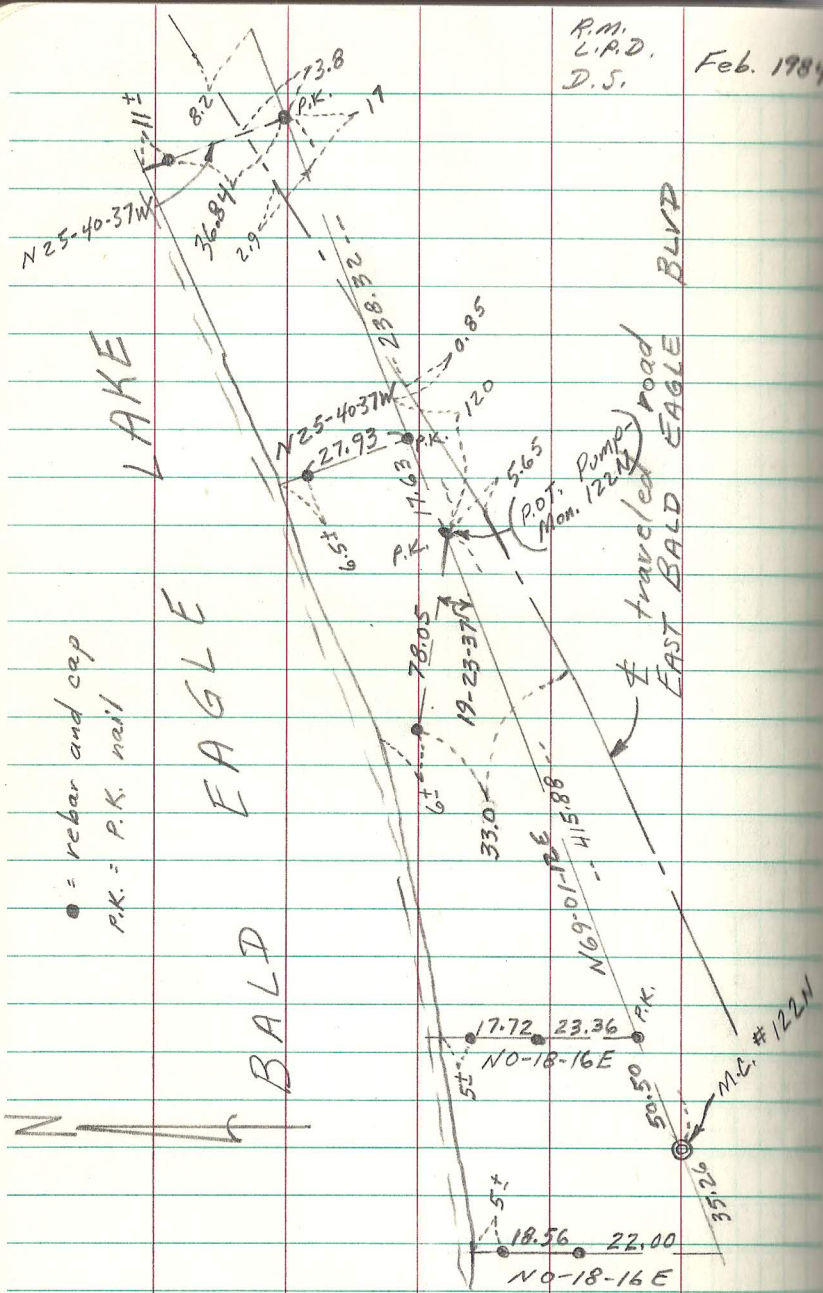 R.M.
L.P.D.
D.S.
Feb. 1984
11±
8.2
73.8
P.K.
17
N25-40-37W
36.84
2.9
238.32
0.85
N25-40-37W
27.93
P.K.
120
17.63
5.65
6.5±
P.K.
(P.O.T. Pump-
Mon. 122N)
℄ traveled road
EAST BALD EAGLE BLVD
BALD EAGLE LAKE
● = rebar and cap
P.K. = P.K. nail
78.05
19-23-37W
6±
33.0
N69-01-12E
415.88
17.72 23.36
P.K.
N0-18-16E
5±
50.50
M.C. #122N
N
5±
18.56 22.00
35.26
N0-18-16E